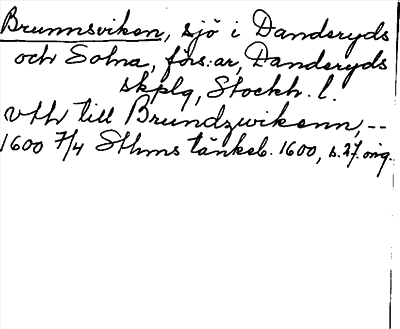 Brunnsviken, sjö i Danderyds
och Solna, förs:ar, Danderyds
skplg, Stockh. l.
vthr till Brundzwikenn, --
1600 7/4 Sthms tänkeb. 1600, s. 27. orig.